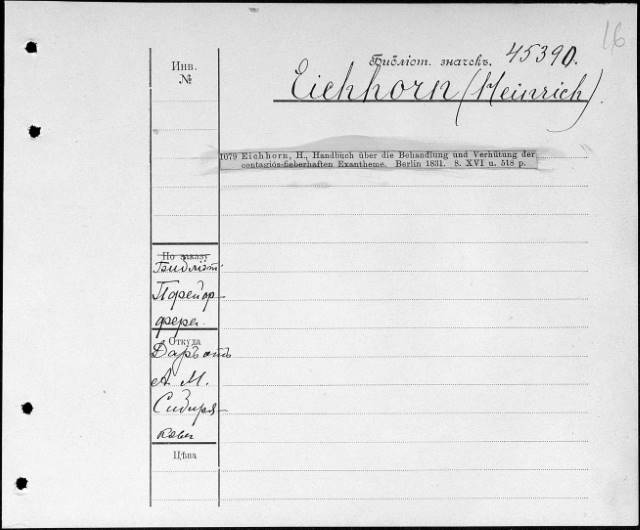 16
Библіот. значекъ. 45390.
Инв.
№
Eichhorn (Heinrich).
1079 Eichhorn, H., Handbuch über die Behandlung und Verhütung der
contagiös-fieberhaften Exantheme. Berlin 1831. 8. XVI u. 518 p.
По заказу
Библіот.
Откуда
Даръ отъ
А. М.
Сибиря-
кова
Цѣна